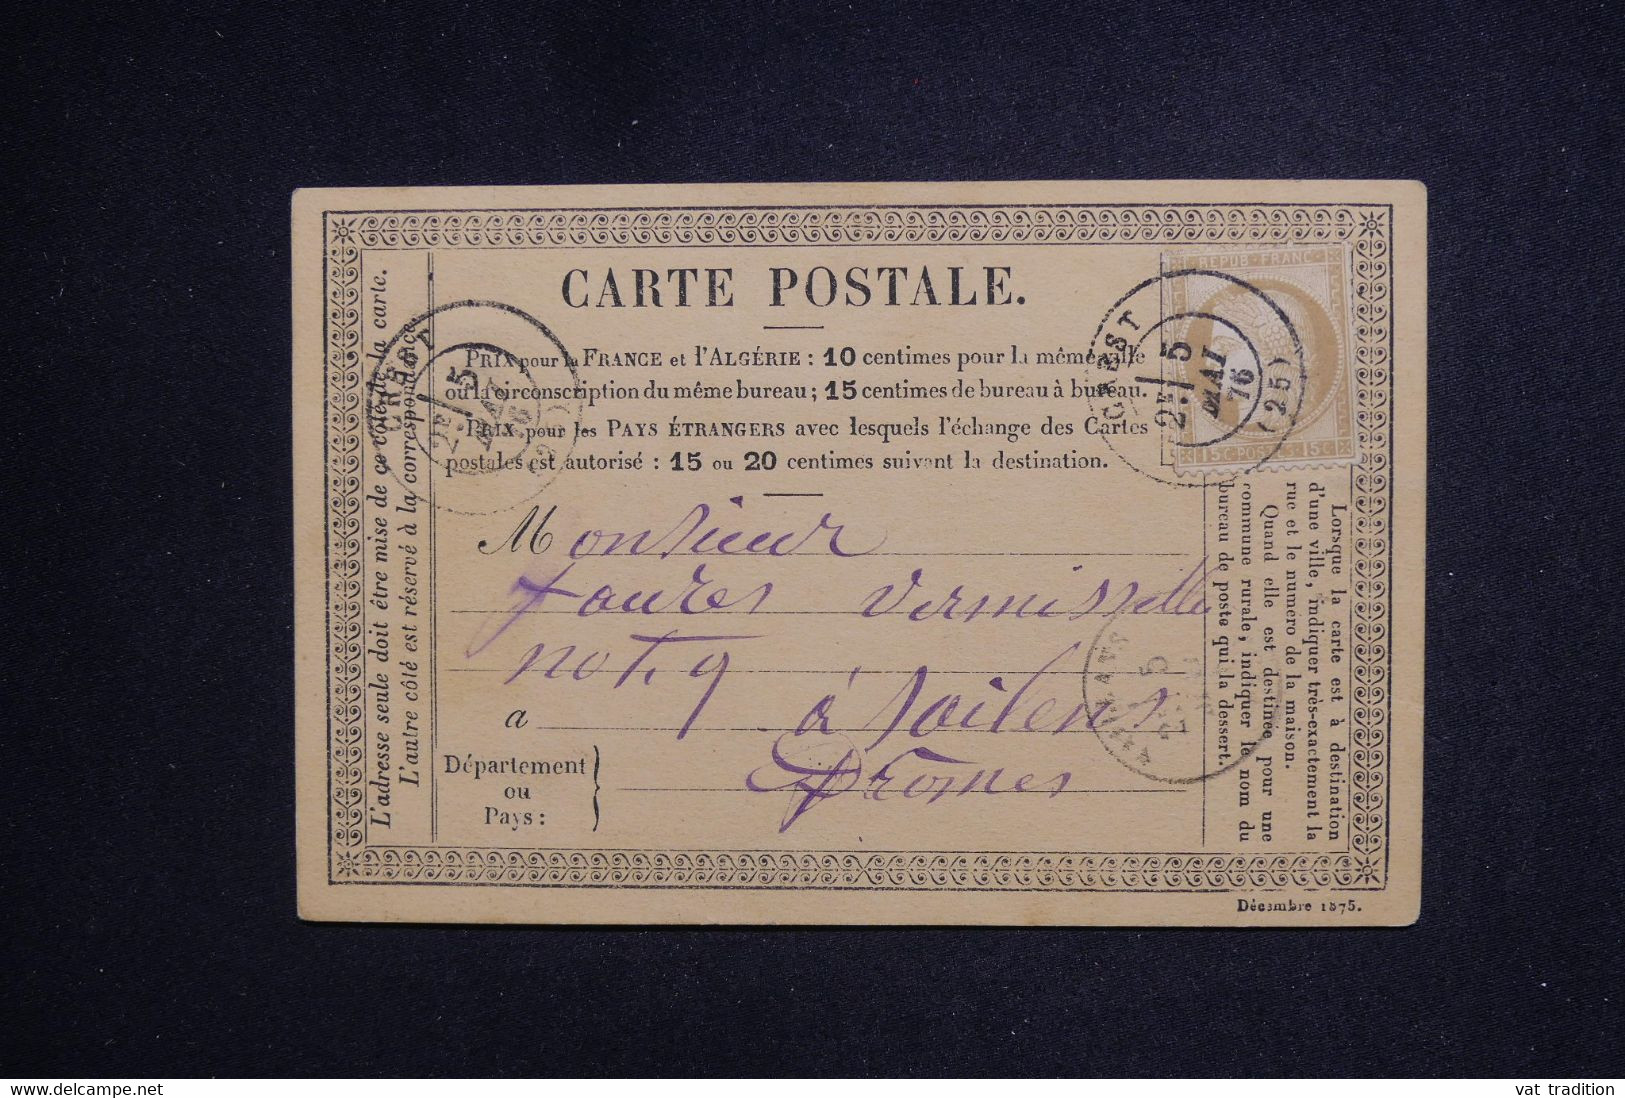 CARTE POSTALE.
PRIX pour la FRANCE et l'ALGÉRIE : 10 centimes pour la même ville
ou la circonscription du même bureau ; 15 centimes de bureau à bureau.
PRIX pour les PAYS ÉTRANGERS avec lesquels l'échange des Cartes
postales est autorisé : 15 ou 20 centimes suivant la destination.
L'adresse seule doit être mise de ce côté de la carte.
L'autre côté est réservé à la correspondance.
CREST
2E
5
MAI
76
CREST
2E
5
MAI
76
(25)
REPUB · FRANC ·
15 C · POSTES · 15 C
Monsieur
faures vermisselle
not, 9
a à Sailens
Département
ou
Pays :
Dromes
5
Lorsque la carte est à destination
d'une ville, indiquer très-exactement la
rue et le numéro de la maison.
Quand elle est destinée pour une
commune rurale, indiquer le nom du
bureau de poste qui la dessert.
Décembre 1875.
delcampe.net
vat tradition